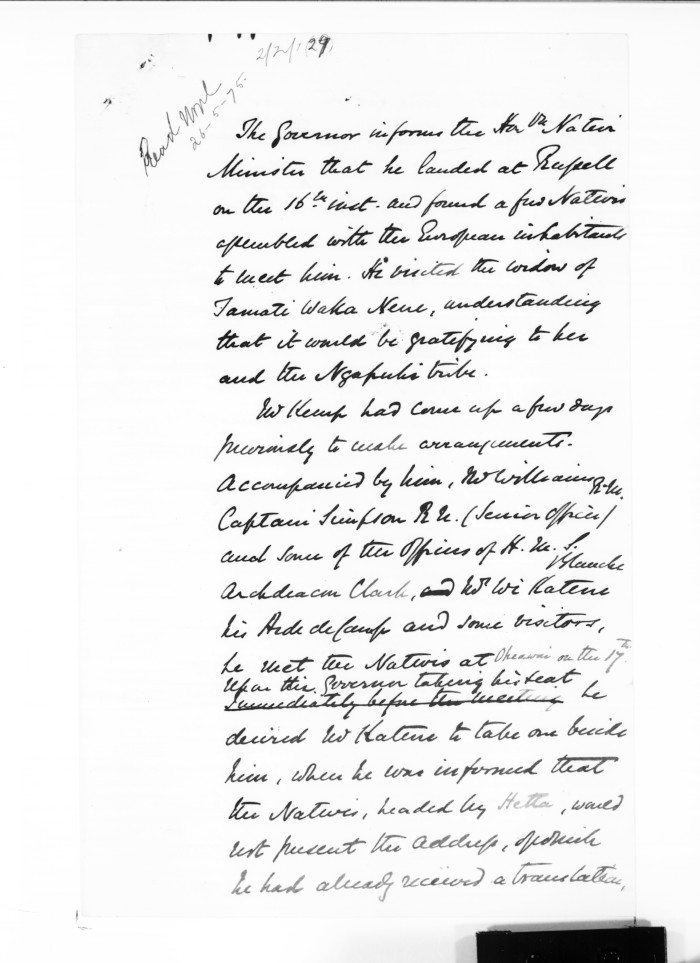 2/2/1 29
Read
26-5-75.
The Governor informs the Honble Native
Minister that he landed at Russell
on the 16th inst. and found a few Natives
assembled with the European inhabitants
to meet him. He visited the widow of
Tamati Waka Nene, understanding
that it would be gratifying to her
and the Ngapuhi tribe.
Mr Kemp had come up a few days
previously to make arrangements.
Accompanied by him, Mr Williams R.M.
Captain Simpson R.N. (Senior Officer)
and some of the Officers of H.M.S.
Blanche
Archdeacon Clark, and Mr Wi Katene
his Aide de Camp and some visitors,
he met the Natives at Ohaewai on the 17th.
Upon the Governor taking his seat
Immediately before the meeting he
desired Mr Katene to take one beside
him, when he was informed that
the Natives, headed by Hetta, would
not present the address, of which
he had already received a translation,